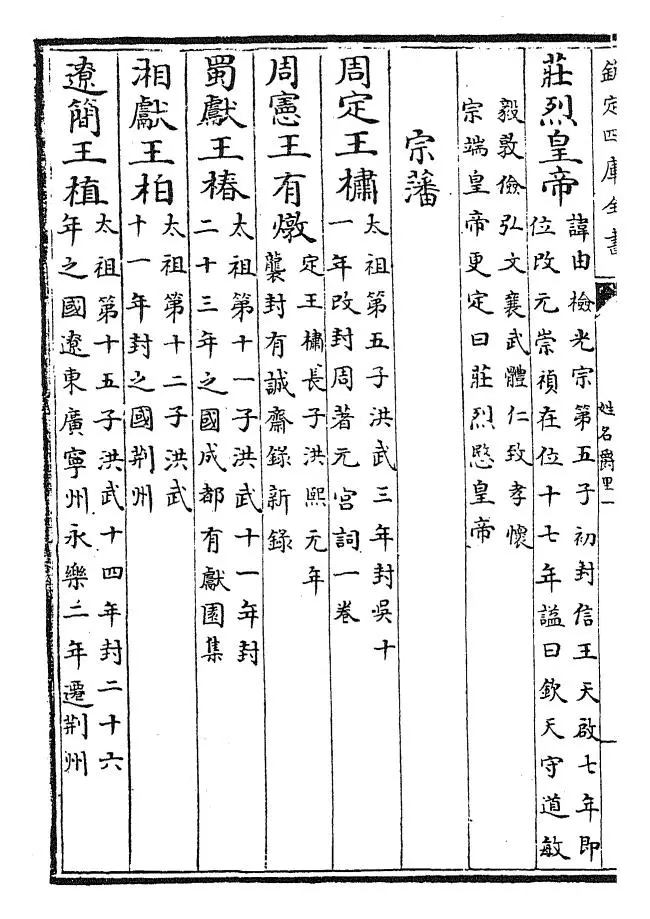 欽定四庫全書
姓名爵里一
莊烈皇帝
諱由檢光宗第五子初封信王天啟七年即
位改元崇禎在位十七年謚曰欽天守道敏
毅敦儉弘文襄武體仁致孝懷
宗端皇帝更定曰莊烈愍皇帝
宗藩
周定王橚
太祖第五子洪武三年封吳十
一年改封周著元宮詞一卷
周憲王有燉
定王橚長子洪熙元年
襲封有誠齋錄新錄
蜀獻王椿
太祖第十一子洪武十一年封
二十三年之國成都有獻園集
湘獻王柏
太祖第十二子洪武
十一年封之國荆州
遼簡王植
太祖第十五子洪武十四年封二十六
年之國遼東廣寧州永樂二年遷荆州